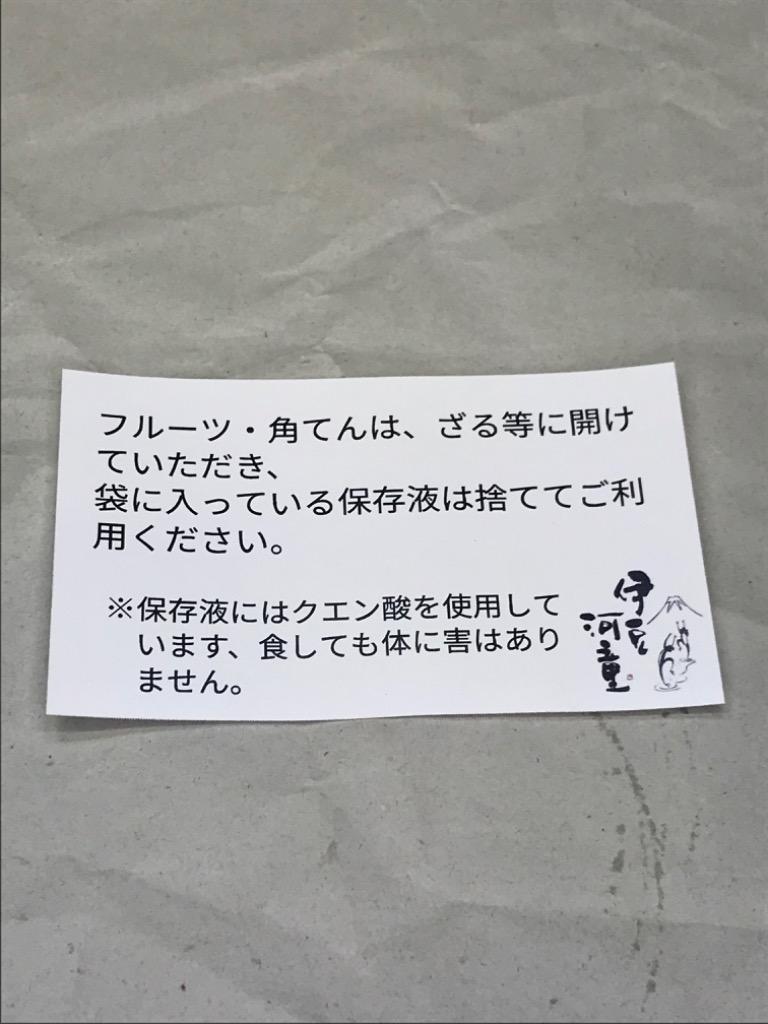 フルーツ・角てんは、ざる等に開け
ていただき、
袋に入っている保存液は捨ててご利
用ください。
※保存液にはクエン酸を使用して
います、食しても体に害はあり
ません。
伊豆
河童